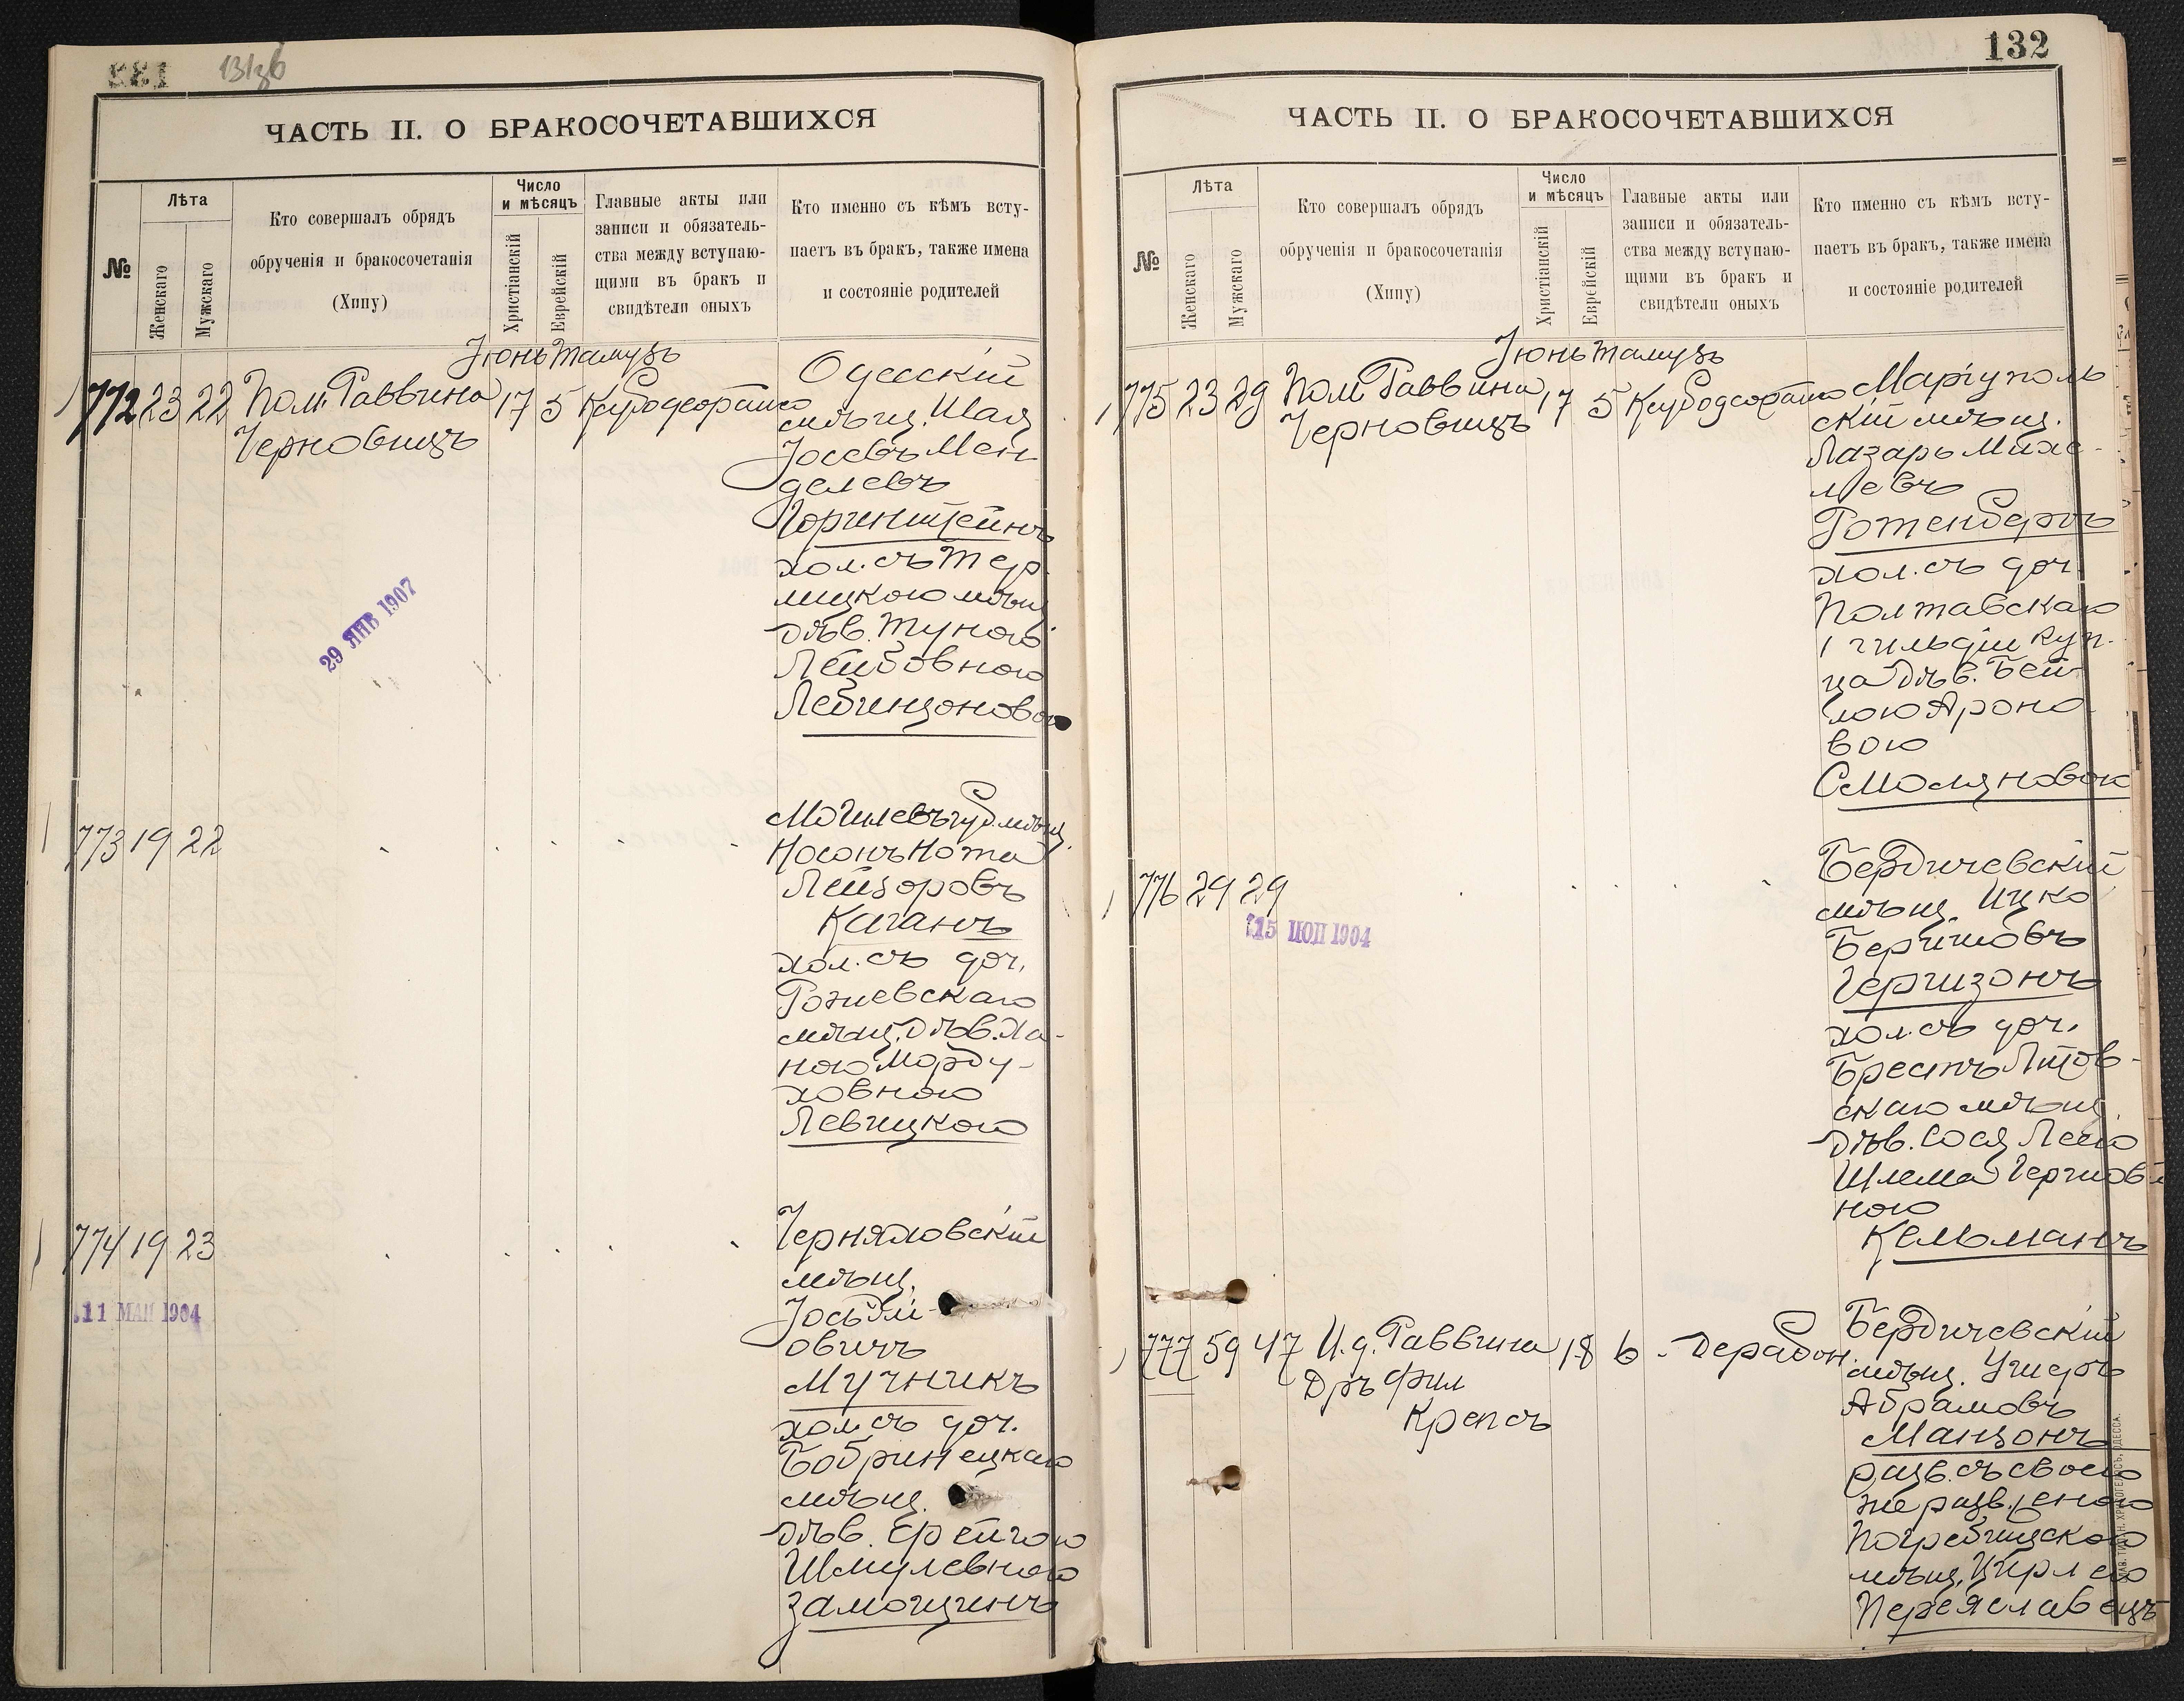 131зв
ЧАСТЬ II. О БРАКОСОЧЕТАВШИХСЯ
№
Лѣта
Женскаго
Мужскаго
Кто совершалъ обрядъ
обрученія и бракосочетанія
(Хипу)
Число
и мѣсяцъ
Христіанскій
Еврейскій
Главные акты или
записи и обязатель-
ства между вступаю-
щими въ бракъ и
свидѣтели оныхъ
Кто именно съ кѣмъ всту-
паетъ въ бракъ, также имена
и состояніе родителей
Іюнь Тамузъ
772 23 22 Пом. Раввина 17 5
Черновицъ
Одесскій
мѣщ. Шая
Іосевъ Мен
делевъ
Горенштейнъ
хол. съ
лицкою мѣщ
дѣв.
Лейбовною
Левинзоновою
29 ЯНВ 1907
773 19 22
Могилевъ губ. мѣщ.
Носонъ Нота
Лейзоровъ
Каганъ
хол. съ доч.
Рожевскаго
мѣщ. дѣв. Ха-
ною Морду-
ховною
Левицкою
774 19 23
11 МАЯ 1904
Черняховскій
мѣщ.
Іось
овичъ
Мучникъ
хол. съ доч.
Бобринецкаго
мѣщ.
дѣв. Ерейгою
Шмулевною
Замощинъ
132
ЧАСТЬ II. О БРАКОСОЧЕТАВШИХСЯ
№
Лѣта
Женскаго
Мужскаго
Кто совершалъ обрядъ
обрученія и бракосочетанія
(Хипу)
Число
и мѣсяцъ
Христіанскій
Еврейскій
Главные акты или
записи и обязатель-
ства между вступаю-
щими въ бракъ и
свидѣтели оныхъ
Кто именно съ кѣмъ всту-
паетъ въ бракъ, также имена
и состояніе родителей
Іюнь Тамузъ
775 23 29 Пом. Раввина 17 5
Черновицъ
Маріуполь
скій мѣщ.
Лазарь Михе-
левъ
Ротенбергъ
хол. съ доч.
Полтавскаго
1 гильдіи куп.
ца дѣв. Бей
лою Ароно
вою
Смоляновою
776 29 29
15 1904
Бердичевскій
мѣщ. Ицко
Беришовъ
Гершзонъ
хол. съ доч.
Брестъ Литов-
скаго мѣщ.
дѣв. Сося Лею
Шлема Гершов
ною
Кельманъ
777 59 47 И.д. Раввина 18 6
Дръ Фил
Крепсъ
Бердичевскій
мѣщ. Ушеръ
Абрамовъ
Манзонъ
разв. съ своею
же разв. женою
Погребищскою
мѣщ. Цирлею
Переяславецъ